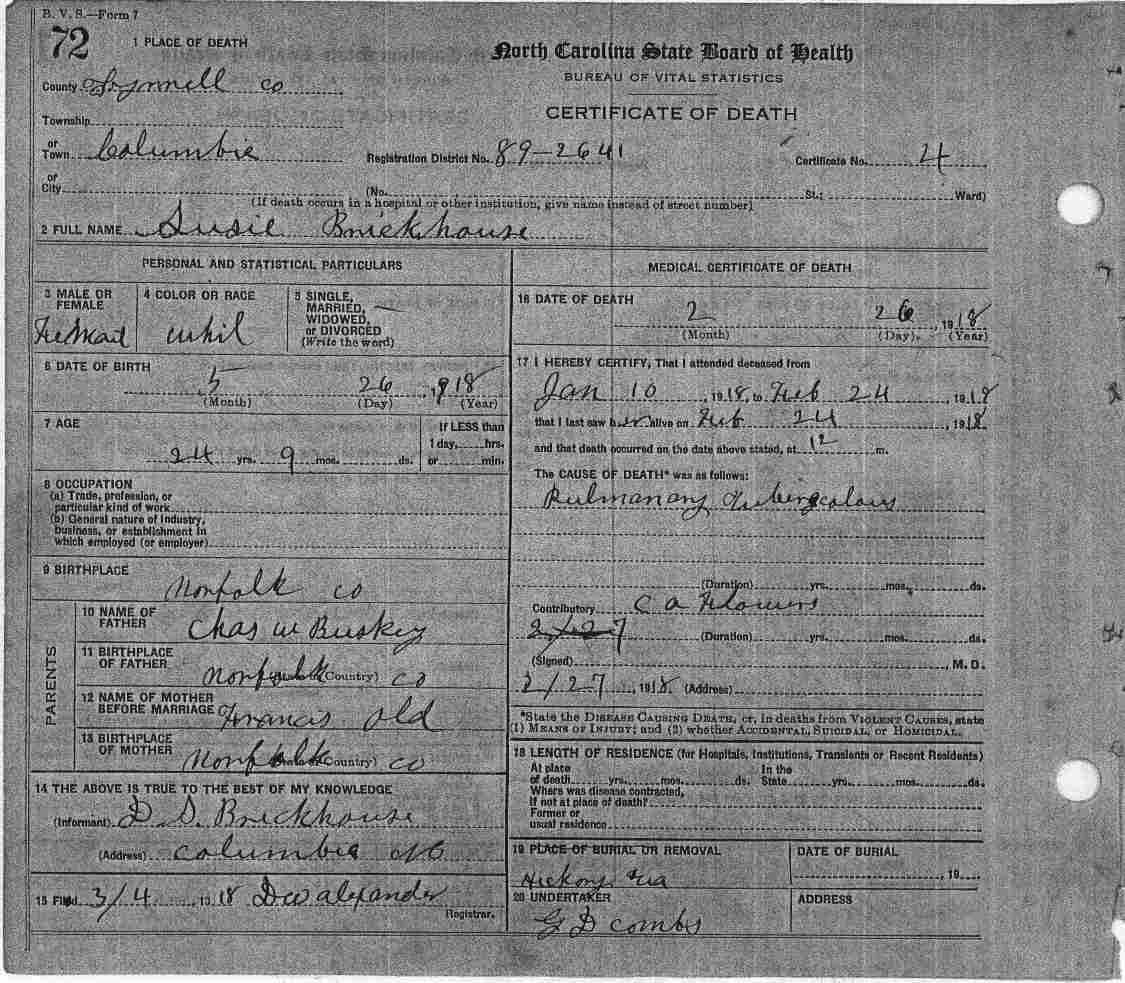 B. V. S.—Form 7
72
1 PLACE OF DEATH
North Carolina State Board of Health
BUREAU OF VITAL STATISTICS
CERTIFICATE OF DEATH
County Tyrrell co
Township
or Town Columbia Registration District No. 89-2641 Certificate No. 4
or City (No. St.; Ward)
(If death occurs in a hospital or other institution, give name instead of street number)
2 FULL NAME Susie Brickhouse
PERSONAL AND STATISTICAL PARTICULARS
3 MALE OR FEMALE
4 COLOR OR RACE
whit
5 SINGLE, MARRIED, WIDOWED, or DIVORCED
(Write the word)
6 DATE OF BIRTH
5 26, 1918
(Month) (Day) (Year)
7 AGE
24 yrs. 9 mos. ds.
If LESS than
1 day, hrs.
or min.
8 OCCUPATION
(a) Trade, profession, or
particular kind of work
(b) General nature of industry,
business, or establishment in
which employed (or employer)
9 BIRTHPLACE
Norfolk co
PARENTS
10 NAME OF FATHER
Chas W
11 BIRTHPLACE OF FATHER
Norfolk co
(State or Country)
12 NAME OF MOTHER
BEFORE MARRIAGE Francis Old
13 BIRTHPLACE OF MOTHER
Norfolk co
(State or Country)
14 THE ABOVE IS TRUE TO THE BEST OF MY KNOWLEDGE
(Informant) D. S. Brickhouse
(Address) Columbia NC
15 Filed 3/4 1918 D W Alexander
Registrar.
MEDICAL CERTIFICATE OF DEATH
16 DATE OF DEATH
2 26, 1918
(Month) (Day) (Year)
17 I HEREBY CERTIFY, That I attended deceased from
Jan 10, 1918, to Feb 24 1918
that I last saw her alive on Feb 24, 1918.
and that death occurred on the date above stated, at 12 m.
The CAUSE OF DEATH* was as follows:
Pulmanary
(Duration) yrs. mos. ds.
Contributory C A Flowers
2/27 (Duration) yrs. mos. ds.
(Signed) , M. D.
2/27, 1918. (Address)
*State the DISEASE CAUSING DEATH, or, in deaths from VIOLENT CAUSES, state
(1) MEANS OF INJURY; and (2) whether ACCIDENTAL, SUICIDAL, or HOMICIDAL.
18 LENGTH OF RESIDENCE (for Hospitals, Institutions, Transients or Recent Residents)
At place of death yrs. mos. ds. In the State yrs. mos. ds.
Where was disease contracted,
If not at place of death?
Former or
usual residence
19 PLACE OF BURIAL OR REMOVAL
Hickory Va
DATE OF BURIAL
, 19
20 UNDERTAKER
G D Combs
ADDRESS